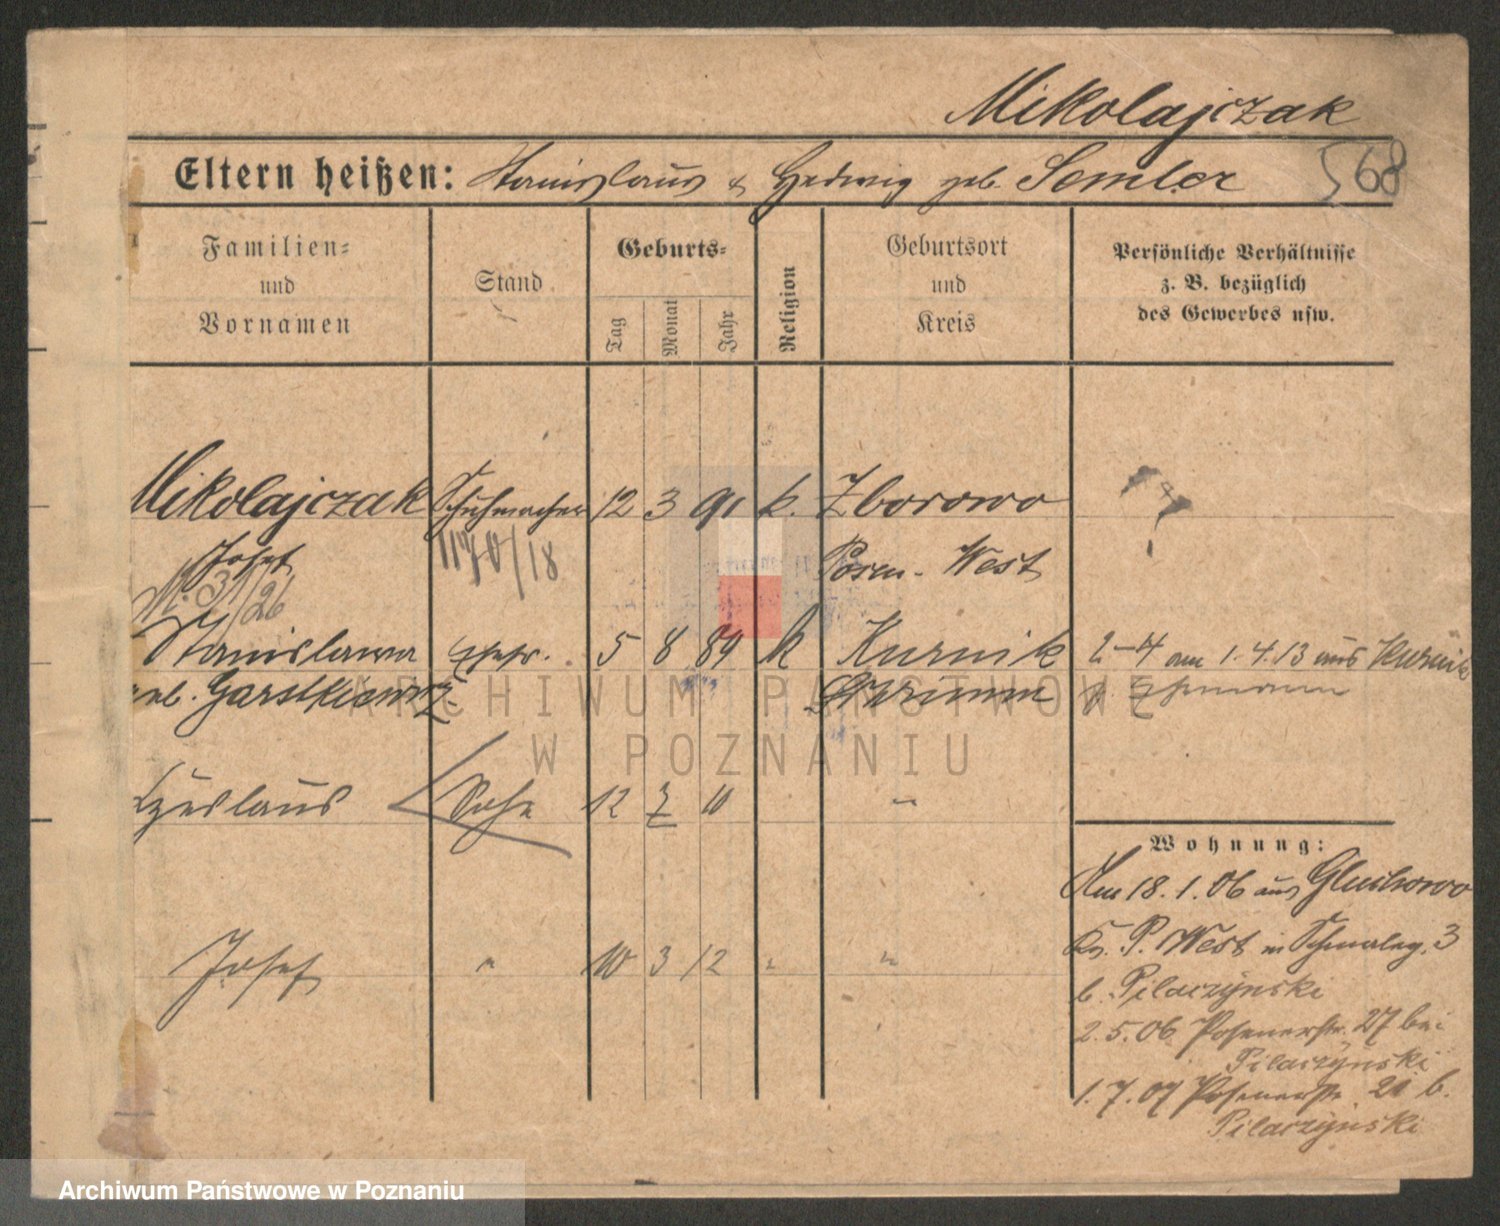 Mikolajczak
Eltern heißen: Stanislaus & Hedwig geb. Semler
568
Familien- und Vornamen
Stand
Geburts-
Tag
Monat
Jahr
Religion
Geburtsort und Kreis
Persönliche Verhältnisse z. B. bezüglich des Gewerbes usw.
Mikolajczak Schuhmacher 12 3 91 k. Zborowo
Josef Posen-West
Stanislawa Ehefr. 5 8 89 k Kurnik 2-4 am 1.4.13 aus Kurnik
geb. Garstkiewicz Schrimm
Czeslaus Sohn 12 7 10 "
Josef " 10 3 12 " "
Wohnung:
Am 18.1.06 aus Gluchowo
Kr. P. West in Schmaleg. 3
b. Pilaczynski
2.5.06 Posenerstr. 27 bei
Pilaczynski
1.7.07 Posenerstr. 21 b.
Pilaczynski
ARCHIWUM PAŃSTWOWE
W POZNANIU
Archiwum Państwowe w Poznaniu